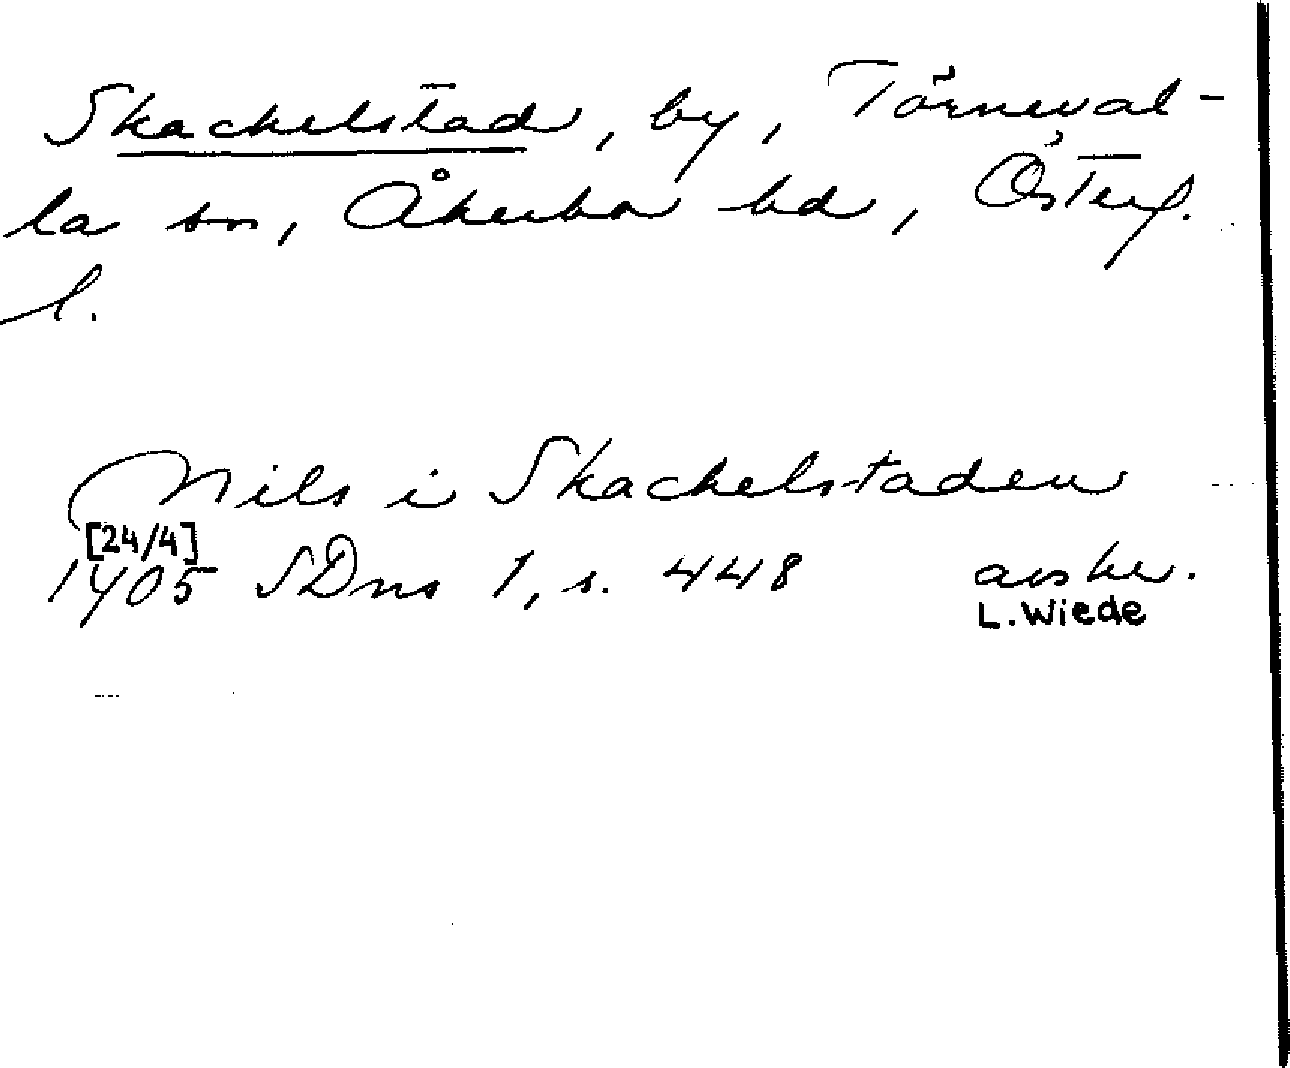 Skackelstad, by, Törneval-
la sn, Åkerbo hd, Österg.
l.
Nils i Skackelstaden
[24/4]
1405 SDns 1, s. 448 avskr.
L. Wiede